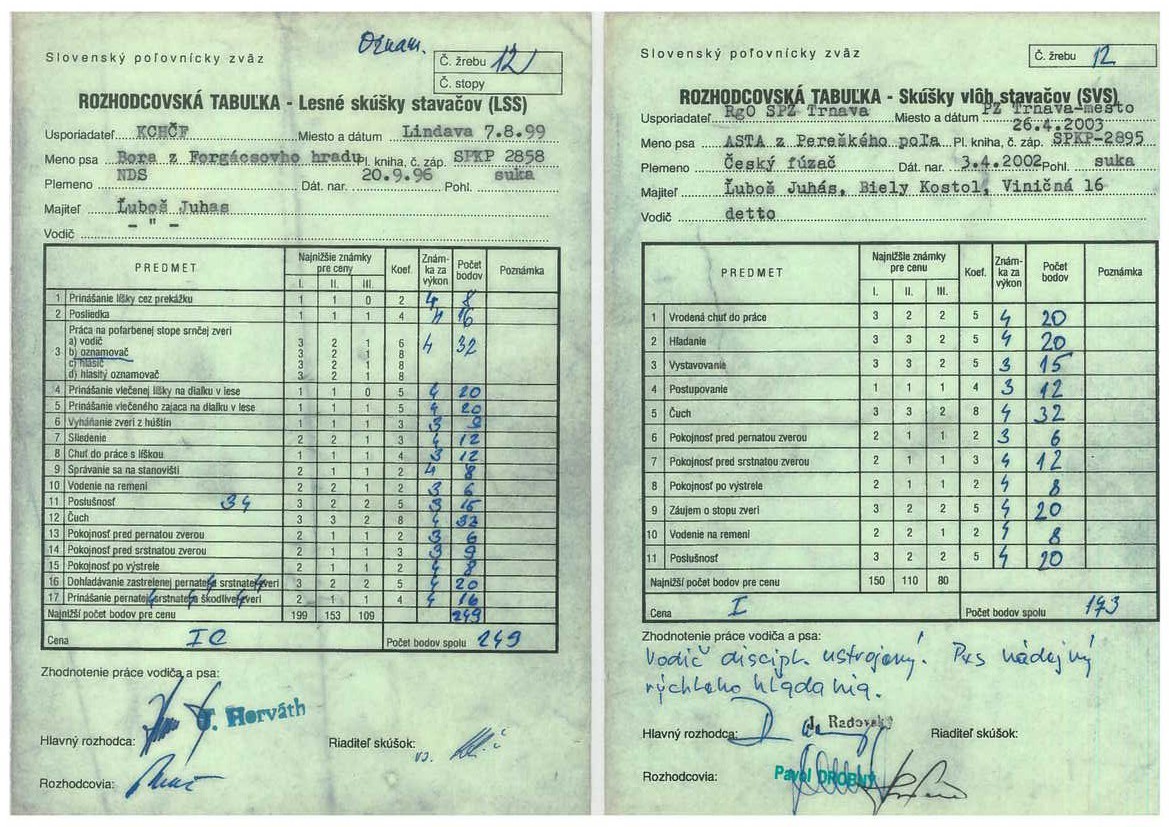 Oznam.
Slovenský poľovnícky zväz
Č. žrebu 12
Č. stopy
ROZHODCOVSKÁ TABUĽKA - Lesné skúšky stavačov (LSS)
Usporiadateľ KCHČF Miesto a dátum Lindava 7.8.99
Meno psa Bora z Forgácsovho hradu Pl. kniha, č. záp. SPKP 2858
Plemeno NDS Dát. nar. 20.9.96 Pohl. suka
Majiteľ Ľuboš Juhas
Vodič - " -
PREDMET Najnižšie známky pre ceny Koef. Znám-ka za výkon Počet bodov Poznámka
I. II. III.
1 Prinášanie líšky cez prekážku 1 1 0 2 4 8
2 Posliedka 1 1 1 4 4 16
3 Práca na pofarbenej stope srnčej zveri
a) vodič 3 2 1 6
b) oznamovač 3 2 1 8 4 32
c) hlásič 3 2 1 8
d) hlasitý oznamovač 3 2 1 8
4 Prinášanie vlečenej líšky na diaľku v lese 1 1 0 5 4 20
5 Prinášanie vlečeného zajaca na diaľku v lese 1 1 1 5 4 20
6 Vyháňanie zveri z húštin 1 1 1 3 3 9
7 Sliedenie 2 2 1 3 4 12
8 Chuť do práce s líškou 1 1 1 4 3 12
9 Správanie sa na stanovišti 2 1 1 2 4 8
10 Vodenie na remeni 2 2 1 2 3 6
11 Poslušnosť 34 3 2 2 5 3 15
12 Čuch 3 3 2 8 4 32
13 Pokojnosť pred pernatou zverou 2 1 1 2 3 6
14 Pokojnosť pred srstnatou zverou 2 1 1 3 3 9
15 Pokojnosť po výstrele 2 1 1 2 4 8
16 Dohľadávanie zastrelenej pernatej 4 a srstnatej 4 zveri 3 2 2 5 4 20
17 Prinášanie pernatej 4 srstnatej 4 škodlivej 4 zveri 2 1 1 4 4 16
Najnižší počet bodov pre cenu 199 153 109 249
Cena I C Počet bodov spolu 249
Zhodnotenie práce vodiča a psa:
J. Horváth
Hlavný rozhodca: Riaditeľ skúšok:
Rozhodcovia:
Slovenský poľovnícky zväz
Č. žrebu 12
ROZHODCOVSKÁ TABUĽKA - Skúšky vlôh stavačov (SVS)
Usporiadateľ RgO SPZ Trnava Miesto a dátum PZ Trnava-mesto
26.4.2003
Meno psa ASTA z Pereškého poľa Pl. kniha, č. záp. SPKP-2895
Plemeno Český fúzač Dát. nar. 3.4.2002 Pohl. suka
Majiteľ Ľuboš Juhás, Biely Kostol, Viničná 16
Vodič detto
PREDMET Najnižšie známky pre cenu Koef. Znám-ka za výkon Počet bodov Poznámka
I. II. III.
1 Vrodená chuť do práce 3 2 2 5 4 20
2 Hľadanie 3 2 2 5 4 20
3 Vystavovanie 3 3 2 5 3 15
4 Postupovanie 1 1 1 4 3 12
5 Čuch 3 3 2 8 4 32
6 Pokojnosť pred pernatou zverou 2 1 1 2 3 6
7 Pokojnosť pred srstnatou zverou 2 1 1 3 4 12
8 Pokojnosť po výstrele 2 1 1 2 4 8
9 Záujem o stopu zveri 3 2 2 5 4 20
10 Vodenie na remeni 2 2 1 2 4 8
11 Poslušnosť 3 2 2 5 4 20
Najnižší počet bodov pre cenu 150 110 80
Cena I Počet bodov spolu 173
Zhodnotenie práce vodiča a psa:
Vodič discipl. ustrojený! Pes nádejný
rýchleho hľadania.
J. Radovský
Hlavný rozhodca: Riaditeľ skúšok:
Rozhodcovia: Pavol DROBNÝ